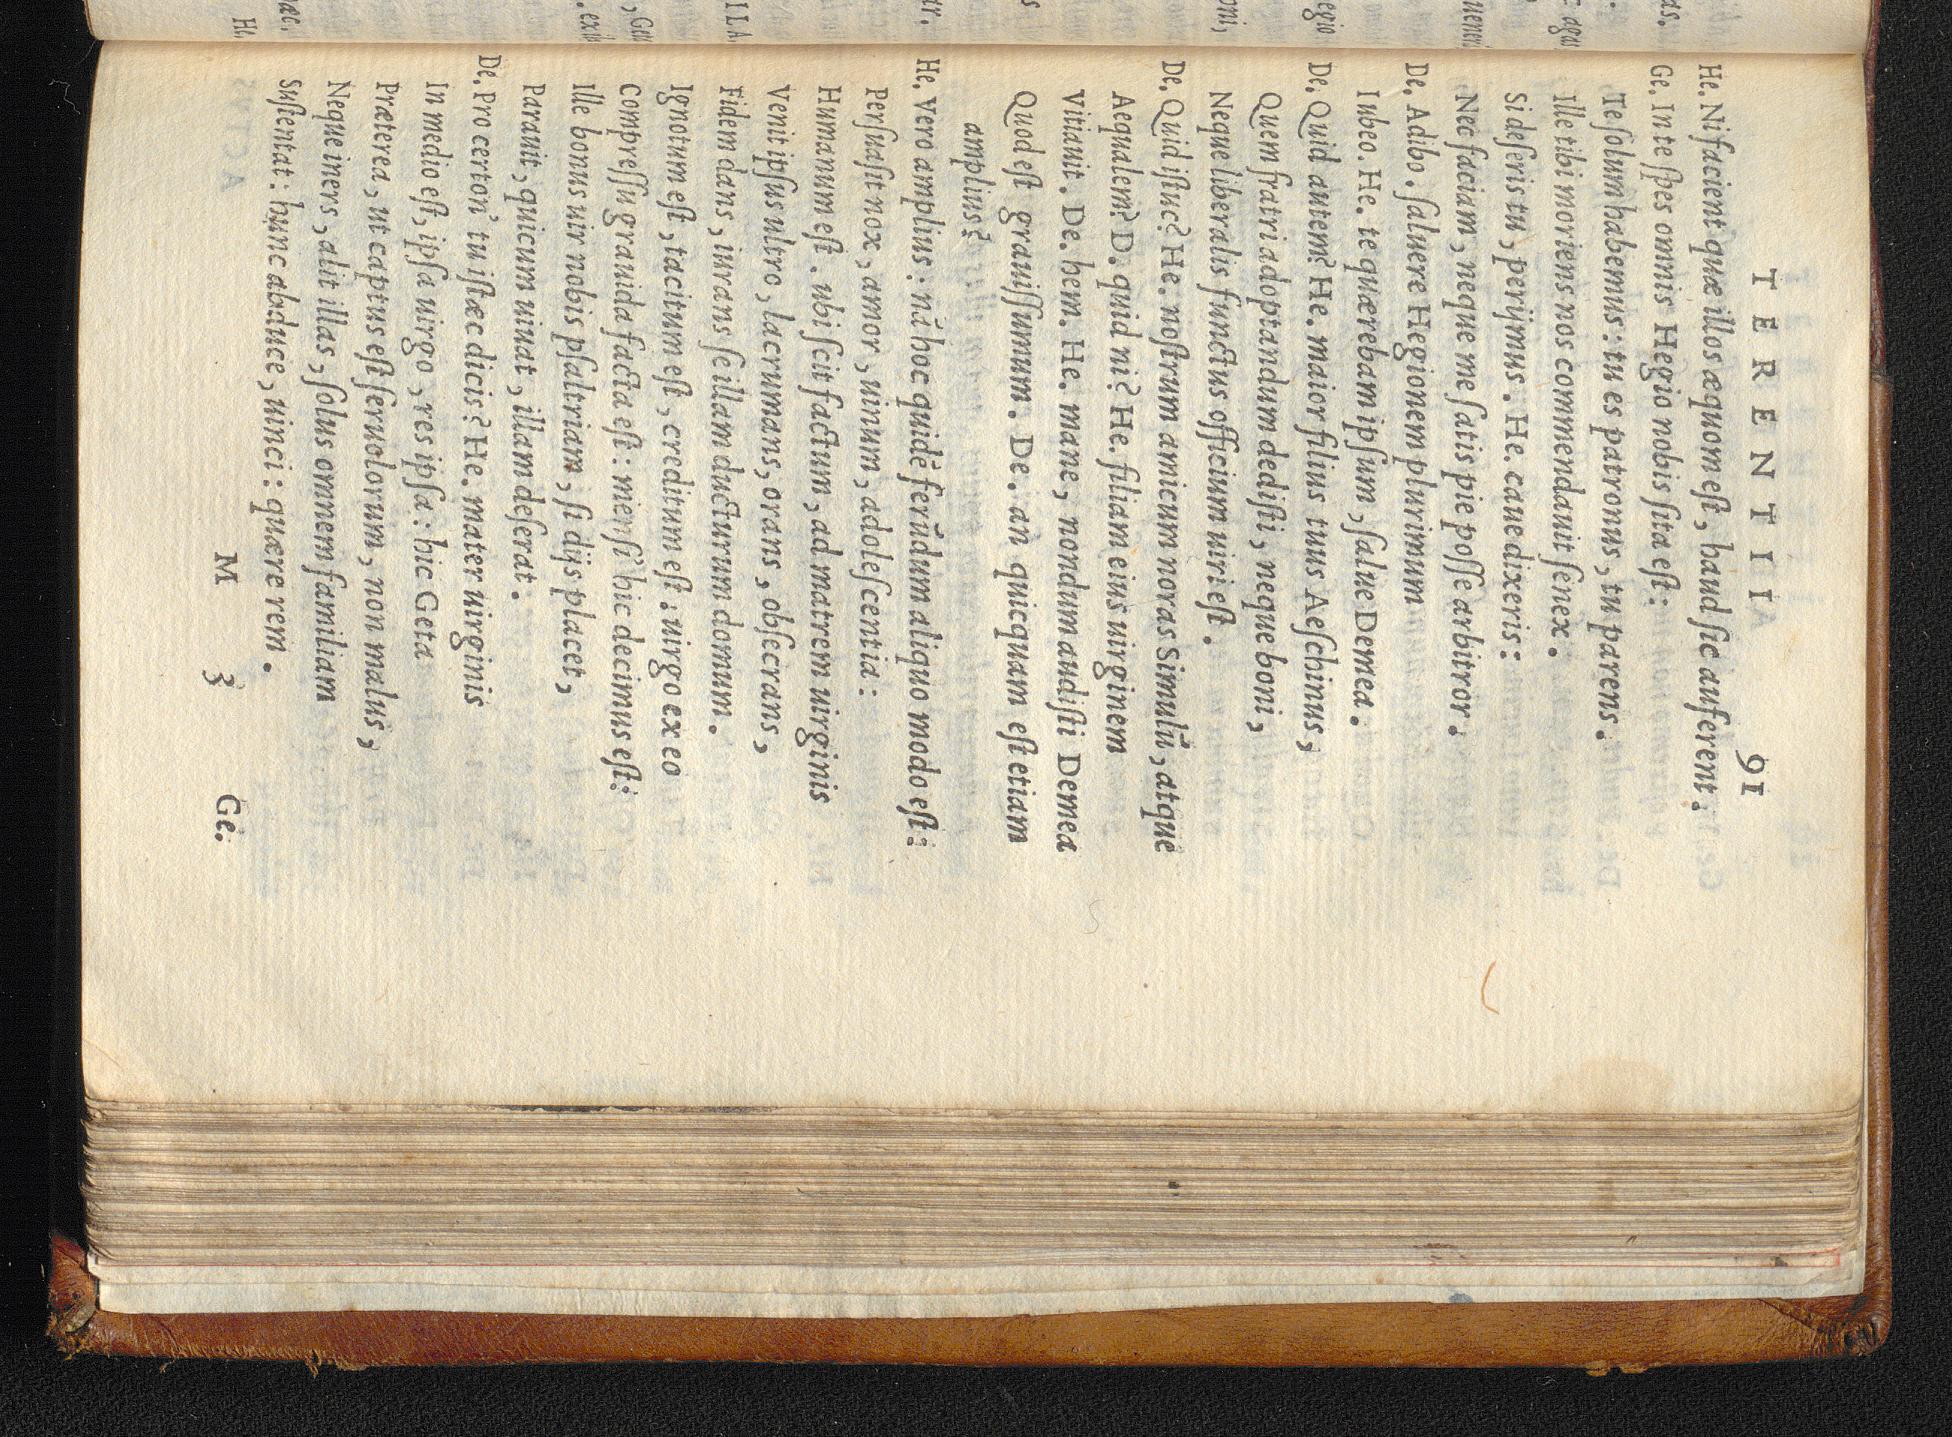 TERENTII 91
He. Ni facient quæ illos æquom eſt, haud ſic auferent.
Ge. In te ſpes omnis Hegio nobis ſita eſt:
Te ſolum habemus: tu es patronus, tu parens.
Ille tibi moriens nos commendauit ſenex.
Si deſeris tu, perijmus. He. caue dixeris:
Nec faciam, neque me ſatis pie poſſe arbitror.
De. Adibo. ſaluere Hegionem plurimum
Iubeo. He. te quærebam ipſum, ſalue Demea.
De. Quid autem? He. maior filius tuus Aeſchinus,
Quem fratri adoptandum dediſti, neque boni,
Neque liberalis functus officium uiri eſt.
De. Quid iſtuc? He. noſtrum amicum noras Simulū, atque
Aequalem? D. quid ni? He. filiam eius uirginem
Vitiauit. De. hem. He. mane, nondum audiſti Demea
Quod eſt grauiſſumum. De. an quicquam eſt etiam
amplius?
He. Vero amplius: nā hoc quidē ferūdum aliquo modo eſt:
Perſuaſit nox, amor, uinum, adoleſcentia:
Humanum eſt. ubi ſcit factum, ad matrem uirginis
Venit ipſus ultro, lacrumans, orans, obſecrans,
Fidem dans, iurans ſe illam ducturum domum.
Ignotum eſt, tacitum eſt, creditum eſt. uirgo ex eo
Compreſſu grauida facta eſt: menſi' hic decimus eſt:
Ille bonus uir nobis pſaltriam, ſi dijs placet,
Parauit, quicum uiuat, illam deſerat.
De. Pro certon' tu iſtæc dicis? He. mater uirginis
In medio eſt, ipſa uirgo, res ipſa: hic Geta
Præterea, ut captus eſt ſeruolorum, non malus,
Neque iners, alit illas, ſolus omnem familiam
Suſtentat: hunc abduce, uinci: quære rem.
M 3 Ge.